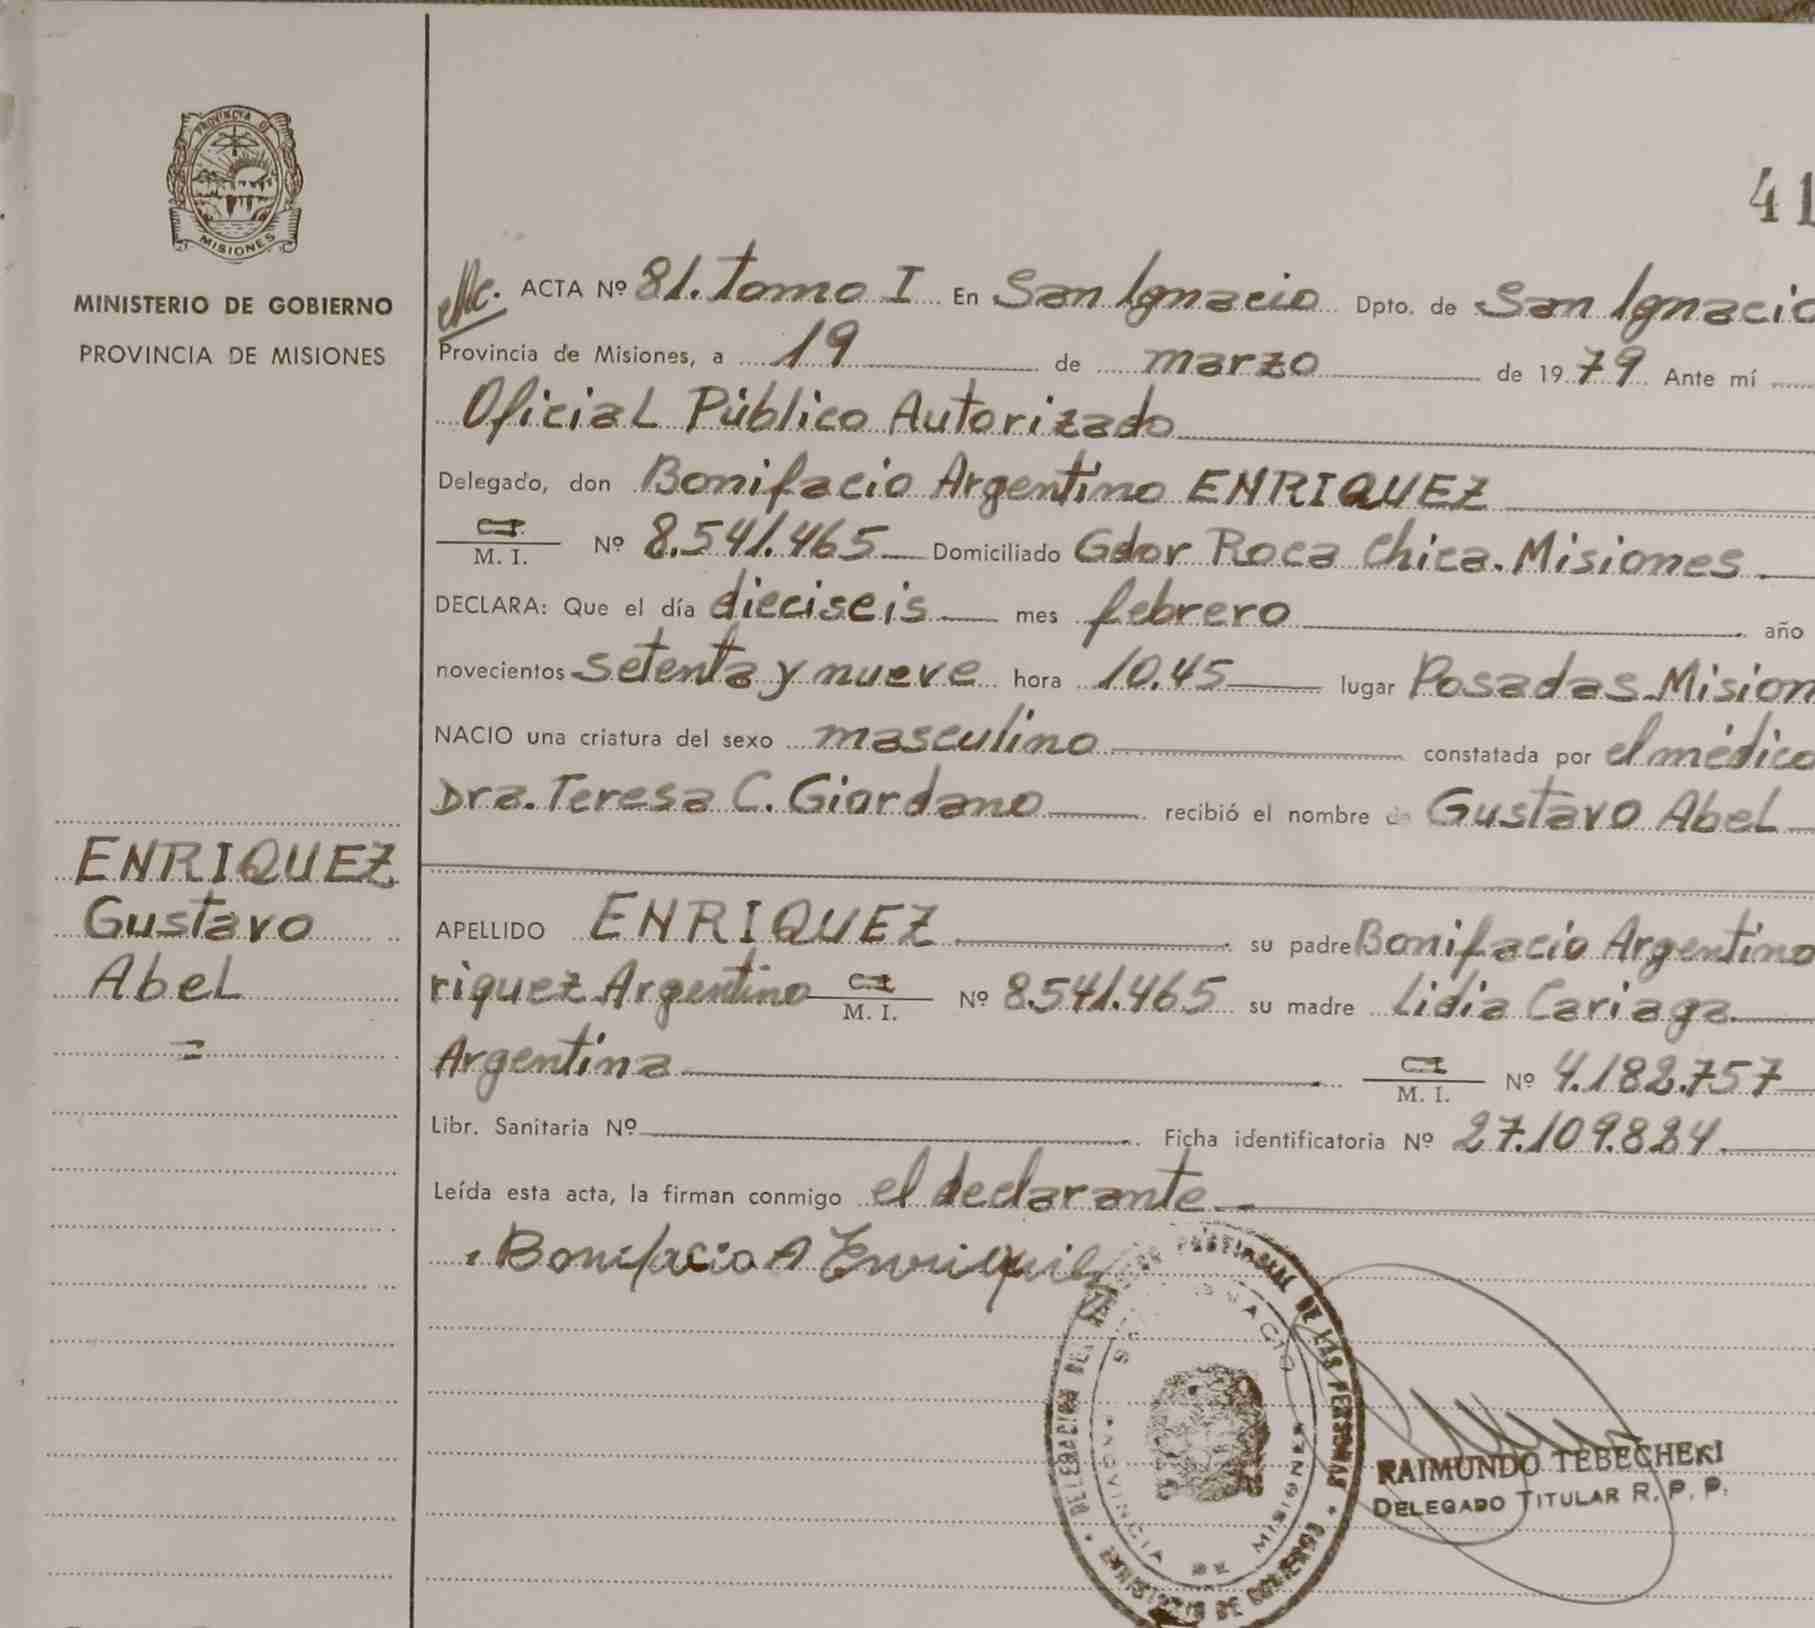 PROVINCIA DE
MISIONES
MINISTERIO DE GOBIERNO
PROVINCIA DE MISIONES
ENRIQUEZ
Gustavo
Abel
=
41
ACTA Nº 81. tomo I En San Ignacio Dpto. de San Ignacio
Provincia de Misiones, a 19 de marzo de 1979 Ante mí
Oficial Público Autorizado
Delegado, don Bonifacio Argentino ENRIQUEZ
C.I. M. I. Nº 8.541.465 Domiciliado Gdor Roca Chica. Misiones
DECLARA: Que el día dieciseis mes febrero año
novecientos setenta y nueve hora 10.45 lugar Posadas. Mision
NACIO una criatura del sexo masculino constatada por el médico
Dra. Teresa C. Giordano recibió el nombre de Gustavo Abel
APELLIDO ENRIQUEZ su padre Bonifacio Argentino
riquez Argentino C.I. M. I. Nº 8.541.465 su madre Lidia Cariaga
Argentina C.I. M. I. Nº 4.182.757
Libr. Sanitaria Nº Ficha identificatoria Nº 27.109.884
Leída esta acta, la firman conmigo el declarante
Bonifacio A Enriquez
PROVINCIAL DE LAS PERSONAS
MINISTERIO DE GOBIERNO
PROVINCIA DE MISIONES
RAIMUNDO TEBECHERI
DELEGADO TITULAR R. P. P.